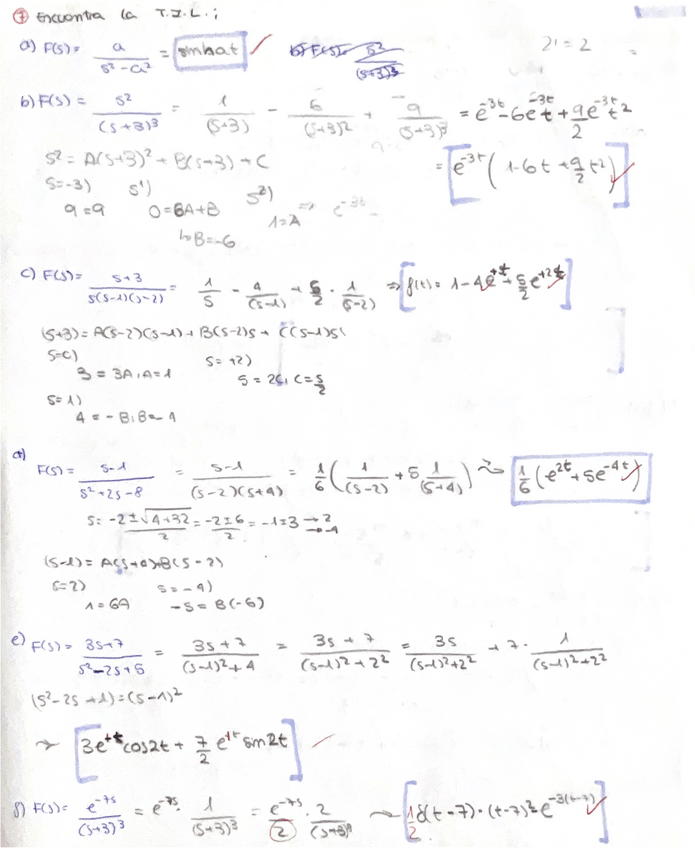 ⑦ Encuentra la T.I.L.:
a) F(s) = a/(s²-a²) = sinhat ✓ 2! = 2 =
b) F(s) = s²/(s+3)³ = 1/(s+3) - 6/(s+3)² + 9/(s+3)³ = e^-3t - 6e^-3t t + 9/2 e^-3t t²
s² = A(s+3)² + B(s+3) + C = [e^-3t (1-6t+9/2 t²)]
s=-3) s¹) s²)
9=9 0=6A+B 1=A ⇒ e^-3t
↳B=-6
c) F(s) = s+3/(s(s-1)(s-2)) = 1/s - 4/(s-1) + 5/2 · 1/(s-2) ⇒ [f(t) = 1-4e^+t + 5/2 e^+2t]
(s+3) = A(s-2)(s-1) + B(s-2)s + C(s-1)s
s=0) s=+2)
3=3A; A=1 5=2C; C=5/2
s=1)
4=-B; B=-4
d)
F(s) = s-1/(s²+2s-8) = s-1/((s-2)(s+4)) = 1/6 (1/(s-2) + 5 1/(s+4)) ~> 1/6 (e^2t + 5e^-4t)
s = -2±√(4+32)/2 = -2±6/2 = -1±3 → 2 → -4
(s-1) = A(s+4)+B(s-2)
s=2) s=-4)
1=6A -5=B(-6)
e) F(s) = 3s+7/(s²-2s+5) = 3s+7/((s-1)²+4) = 3s+7/((s-1)²+2²) = 3s/((s-1)²+2²) + 7 · 1/((s-1)²+2²)
(s²-2s+1) = (s-1)²
→ [3e^+t cos2t + 7/2 e^1t sin2t]
f) F(s) = e^-7s/(s+3)³ = e^-7s · 1/(s+3)³ = e^-7s/2 · 2/(s+3)³ ~> [1/2 δ(t-7)·(t-7)² e^-3(t-7)]